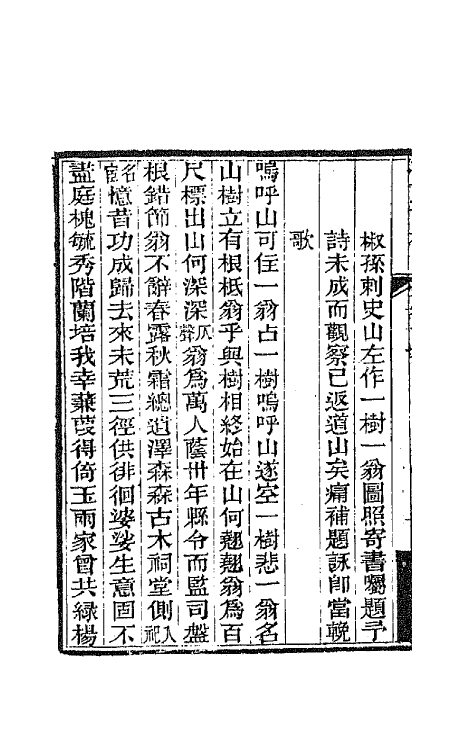 椒孫刺史山左作一樹一翁圖照寄書囑題予
詩未成而觀察已返道山矣痛補題詠卽當輓
歌
嗚呼山可住一翁占一樹嗚呼山遂空一樹悲一翁名
山樹立有根柢翁乎與樹相終始在山何翹翹翁爲百
尺標出山何深深仄聲翁爲萬人蔭卅年縣令而監司盤
根錯節翁不辭春露秋霜總道澤森森古木祠堂側入祀
名宦憶昔功成歸去來未荒三徑供徘徊婆娑生意固不
盡庭槐毓秀階蘭培我幸蒹葭得倚玉兩家曾共綠楊